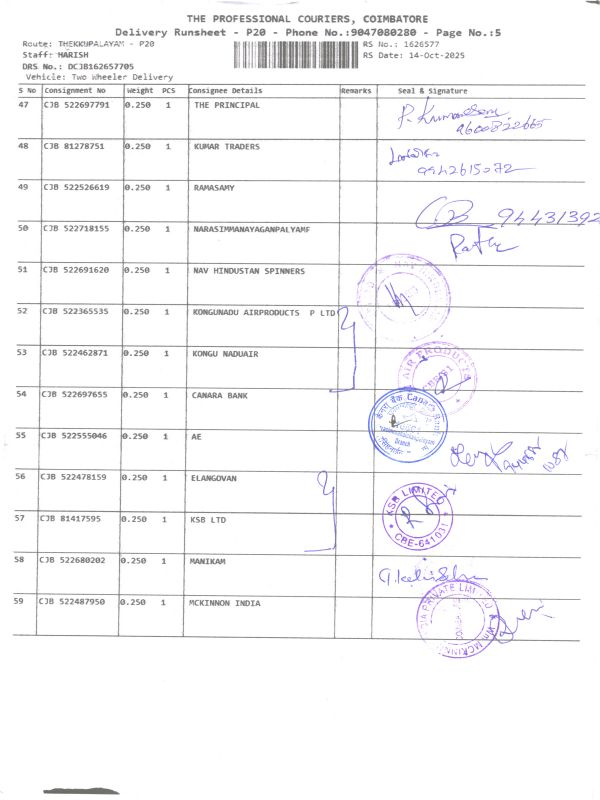 THE PROFESSIONAL COURIERS, COIMBATORE
Delivery Runsheet - P20 - Phone No.:9047080280 - Page No.:5
Route: THEKKUPALAYAM - P20 RS No.: 1626577
Staff: HARISH RS Date: 14-Oct-2025
DRS No.: DCJB162657705
Vehicle: Two Wheeler Delivery
S No Consignment No Weight PCS Consignee Details Remarks Seal & Signature
47 CJB 522697791 0.250 1 THE PRINCIPAL
9600822665
48 CJB 81278751 0.250 1 KUMAR TRADERS
9942615072
49 CJB 522526619 0.250 1 RAMASAMY
94431392
50 CJB 522718155 0.250 1 NARASIMMANAYAGANPALYAMF
51 CJB 522691620 0.250 1 NAV HINDUSTAN SPINNERS
52 CJB 522365535 0.250 1 KONGUNADU AIRPRODUCTS P LTD
53 CJB 522462871 0.250 1 KONGU NADUAIR
AIR PRODUCTS
54 CJB 522697655 0.250 1 CANARA BANK
केनरा बैंक Canara Bank
Branch
55 CJB 522555046 0.250 1 AE
56 CJB 522478159 0.250 1 ELANGOVAN
57 CJB 81417595 0.250 1 KSB LTD
KSB LIMITED
CBE-641031
58 CJB 522680202 0.250 1 MANIKAM
59 CJB 522487950 0.250 1 MCKINNON INDIA
PRIVATE LIMITED